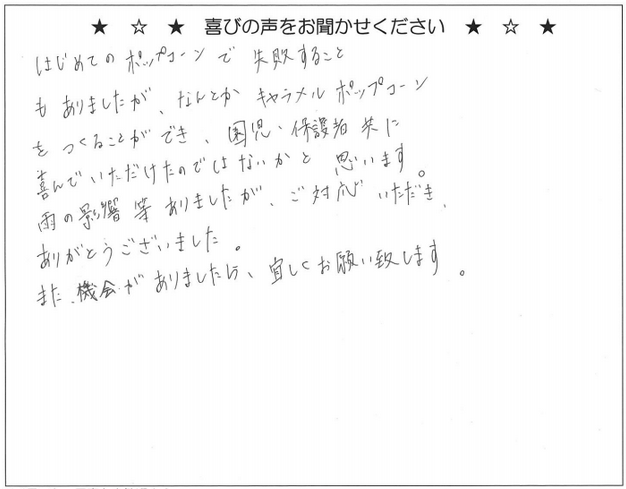 ★ ☆ ★ 喜びの声をお聞かせください ★ ☆ ★
はじめてのポップコーンで失敗すること
もありましたが、なんとかキャラメルポップコーン
をつくることができ、園児・保護者共に
喜んでいただけたのではないかと思います。
雨の影響等ありましたが、ご対応いただき、
ありがとうございました。
また、機会がありましたら、宜しくお願い致します。